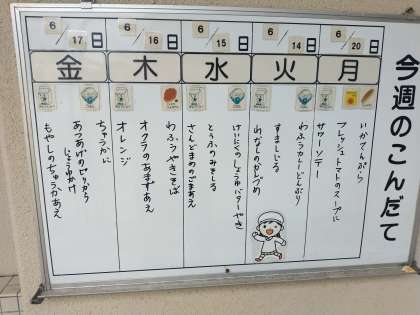 今週のこんだて
6/20日
月
いかてんぷら
フレッシュトマトのスープに
サワーソテー
6/14日
火
わふうカレーどんぶり
すましじる
わなしのかんづめ
6/15日
水
けいにくのしょうゆバターやき
とうふのみそしる
さんどまめのごまあえ
6/16日
木
わふうやきそば
オクラのあまずあえ
オレンジ
6/17日
金
ちゅうかに
あつあげのピリから
じょうゆかけ
もやしのちゅうかあえ